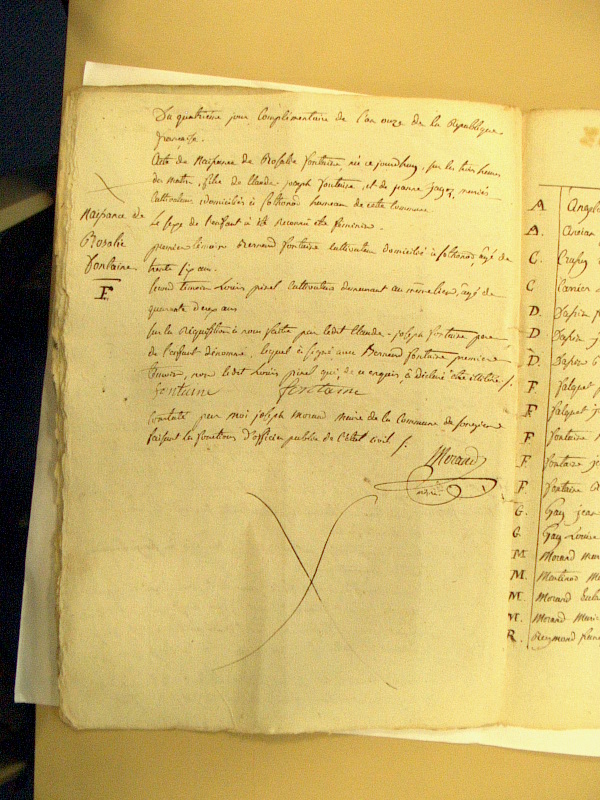 Du quatrieme jour Complimentaire de l'an onze de la République
française.
Acte de Naissance de Rosalie fontaine, née ce jourdhuy, sur les trois heures
du matin, fille de Claude-joseph fontaine, et de jeanne jagez, mariés
Cultivateurs domiciliés à hameau de cette Commune.
Le sexe de l'enfant à été reconnu etre feminin.
Naissance de
Rosalie
fontaine
F.
premier témoin Bernard fontaine cultivateur domicilié à agé de
trente six ans.
second temoin Louis pinel cultivateur demeurant au même lieu, agé de
quarante deux ans
sur la Réquisition à nous faitte par ledit Claude-joseph fontaine pere
de l'enfant dénommé, lequel à signé avec Bernard fontaine premier
temoin, non ledit Louis pinel qui de ce enquis, à déclaré être illitéré
fontaine fontaine
Constaté par moi joseph Morand Maire de la Commune de
faisant les fonctions d'officier public de l'état civil
Morand
maire
A
A.
C.
C
D.
D
D.
F.
F.
F
F. fontaine
F. fontaine
G. Gay jean
G. Gay Louise
M Morand
M. Martinod
M. Morand
M. Morand
R. Reymond